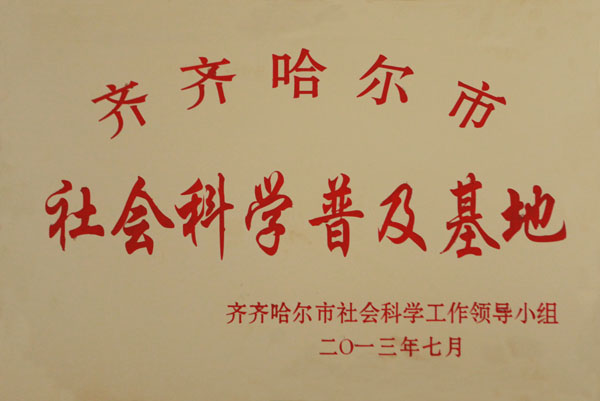 齐齐哈尔市
社会科学普及基地
齐齐哈尔市社会科学工作领导小组
二〇一三年七月